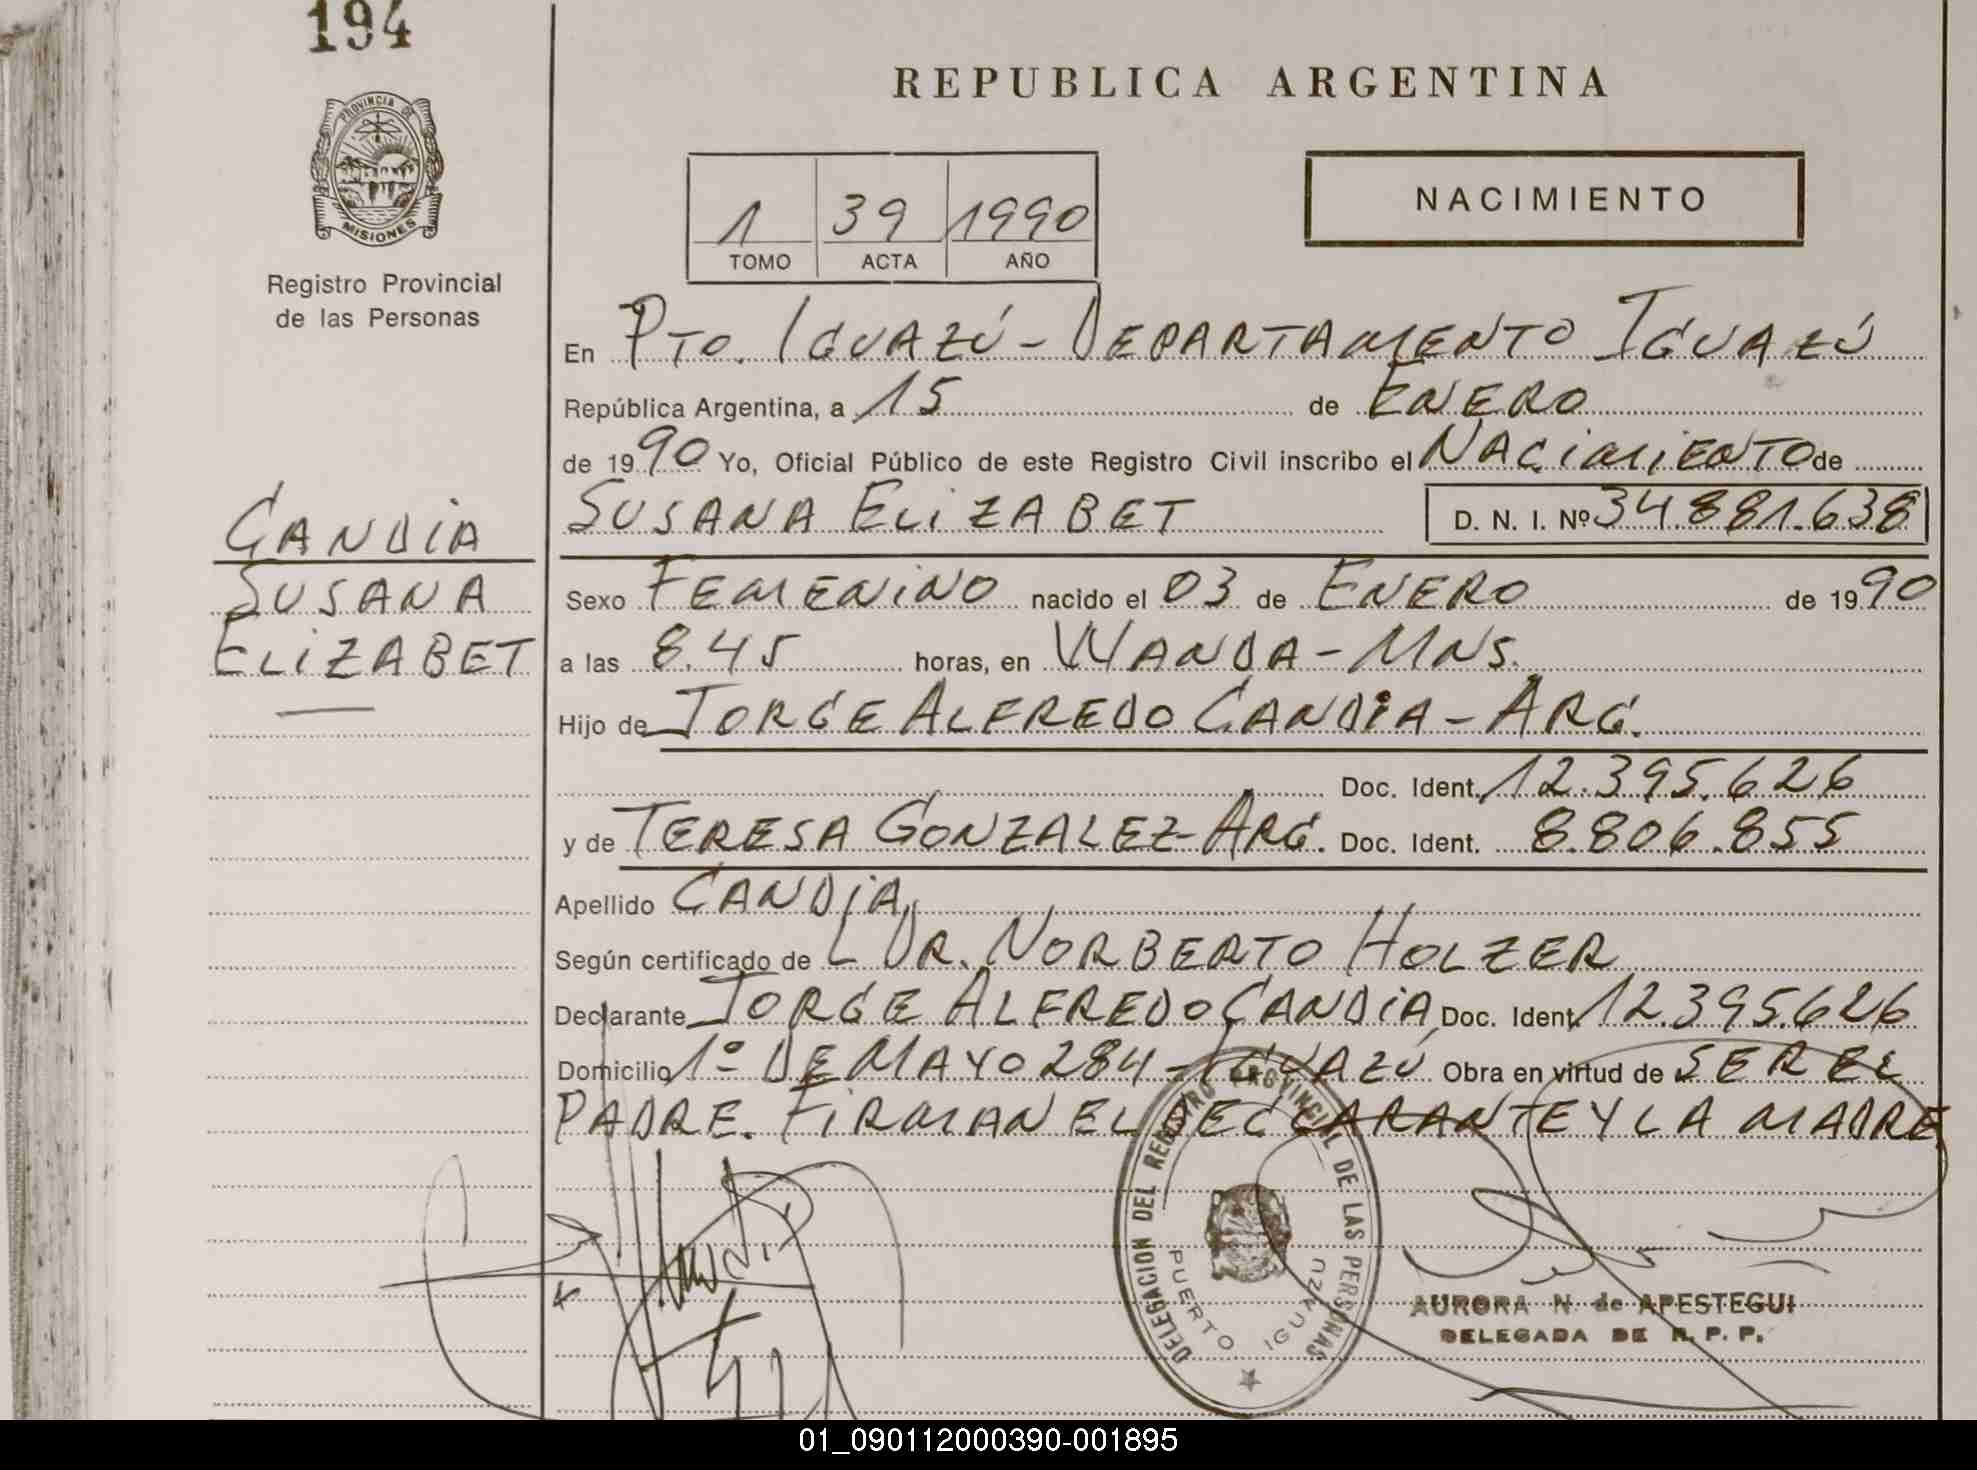 194
PROVINCIA DE
MISIONES
Registro Provincial
de las Personas
REPUBLICA ARGENTINA
1 39 1990
TOMO ACTA AÑO
NACIMIENTO
En PTO. IGUAZÚ - DEPARTAMENTO IGUAZÚ
República Argentina, a 15 de ENERO
de 1990 Yo, Oficial Público de este Registro Civil inscribo el NACIMIENTO de
SUSANA ELIZABET D. N. I. Nº 34.881.638
CANDIA
SUSANA
ELIZABET
Sexo FEMENINO nacido el 03 de ENERO de 1990
a las 8.45 horas, en WANDA - MNS.
Hijo de JORGE ALFREDO CANDIA - ARG.
Doc. Ident. 12.395.626
y de TERESA GONZALEZ - ARG. Doc. Ident. 8.806.855
Apellido CANDIA
Según certificado de DR. NORBERTO HOLZER
Declarante JORGE ALFREDO CANDIA Doc. Ident. 12.395.626
Domicilio 1º DE MAYO 284 - IGUAZÚ Obra en virtud de SER EL
PADRE. FIRMAN EL DECLARANTE Y LA MADRE
DELEGACION DEL REGISTRO PROVINCIAL DE LAS PERSONAS
PUERTO IGUAZU
AURORA N. de APESTEGUI
DELEGADA DE R. P. P.
01_090112000390-001895